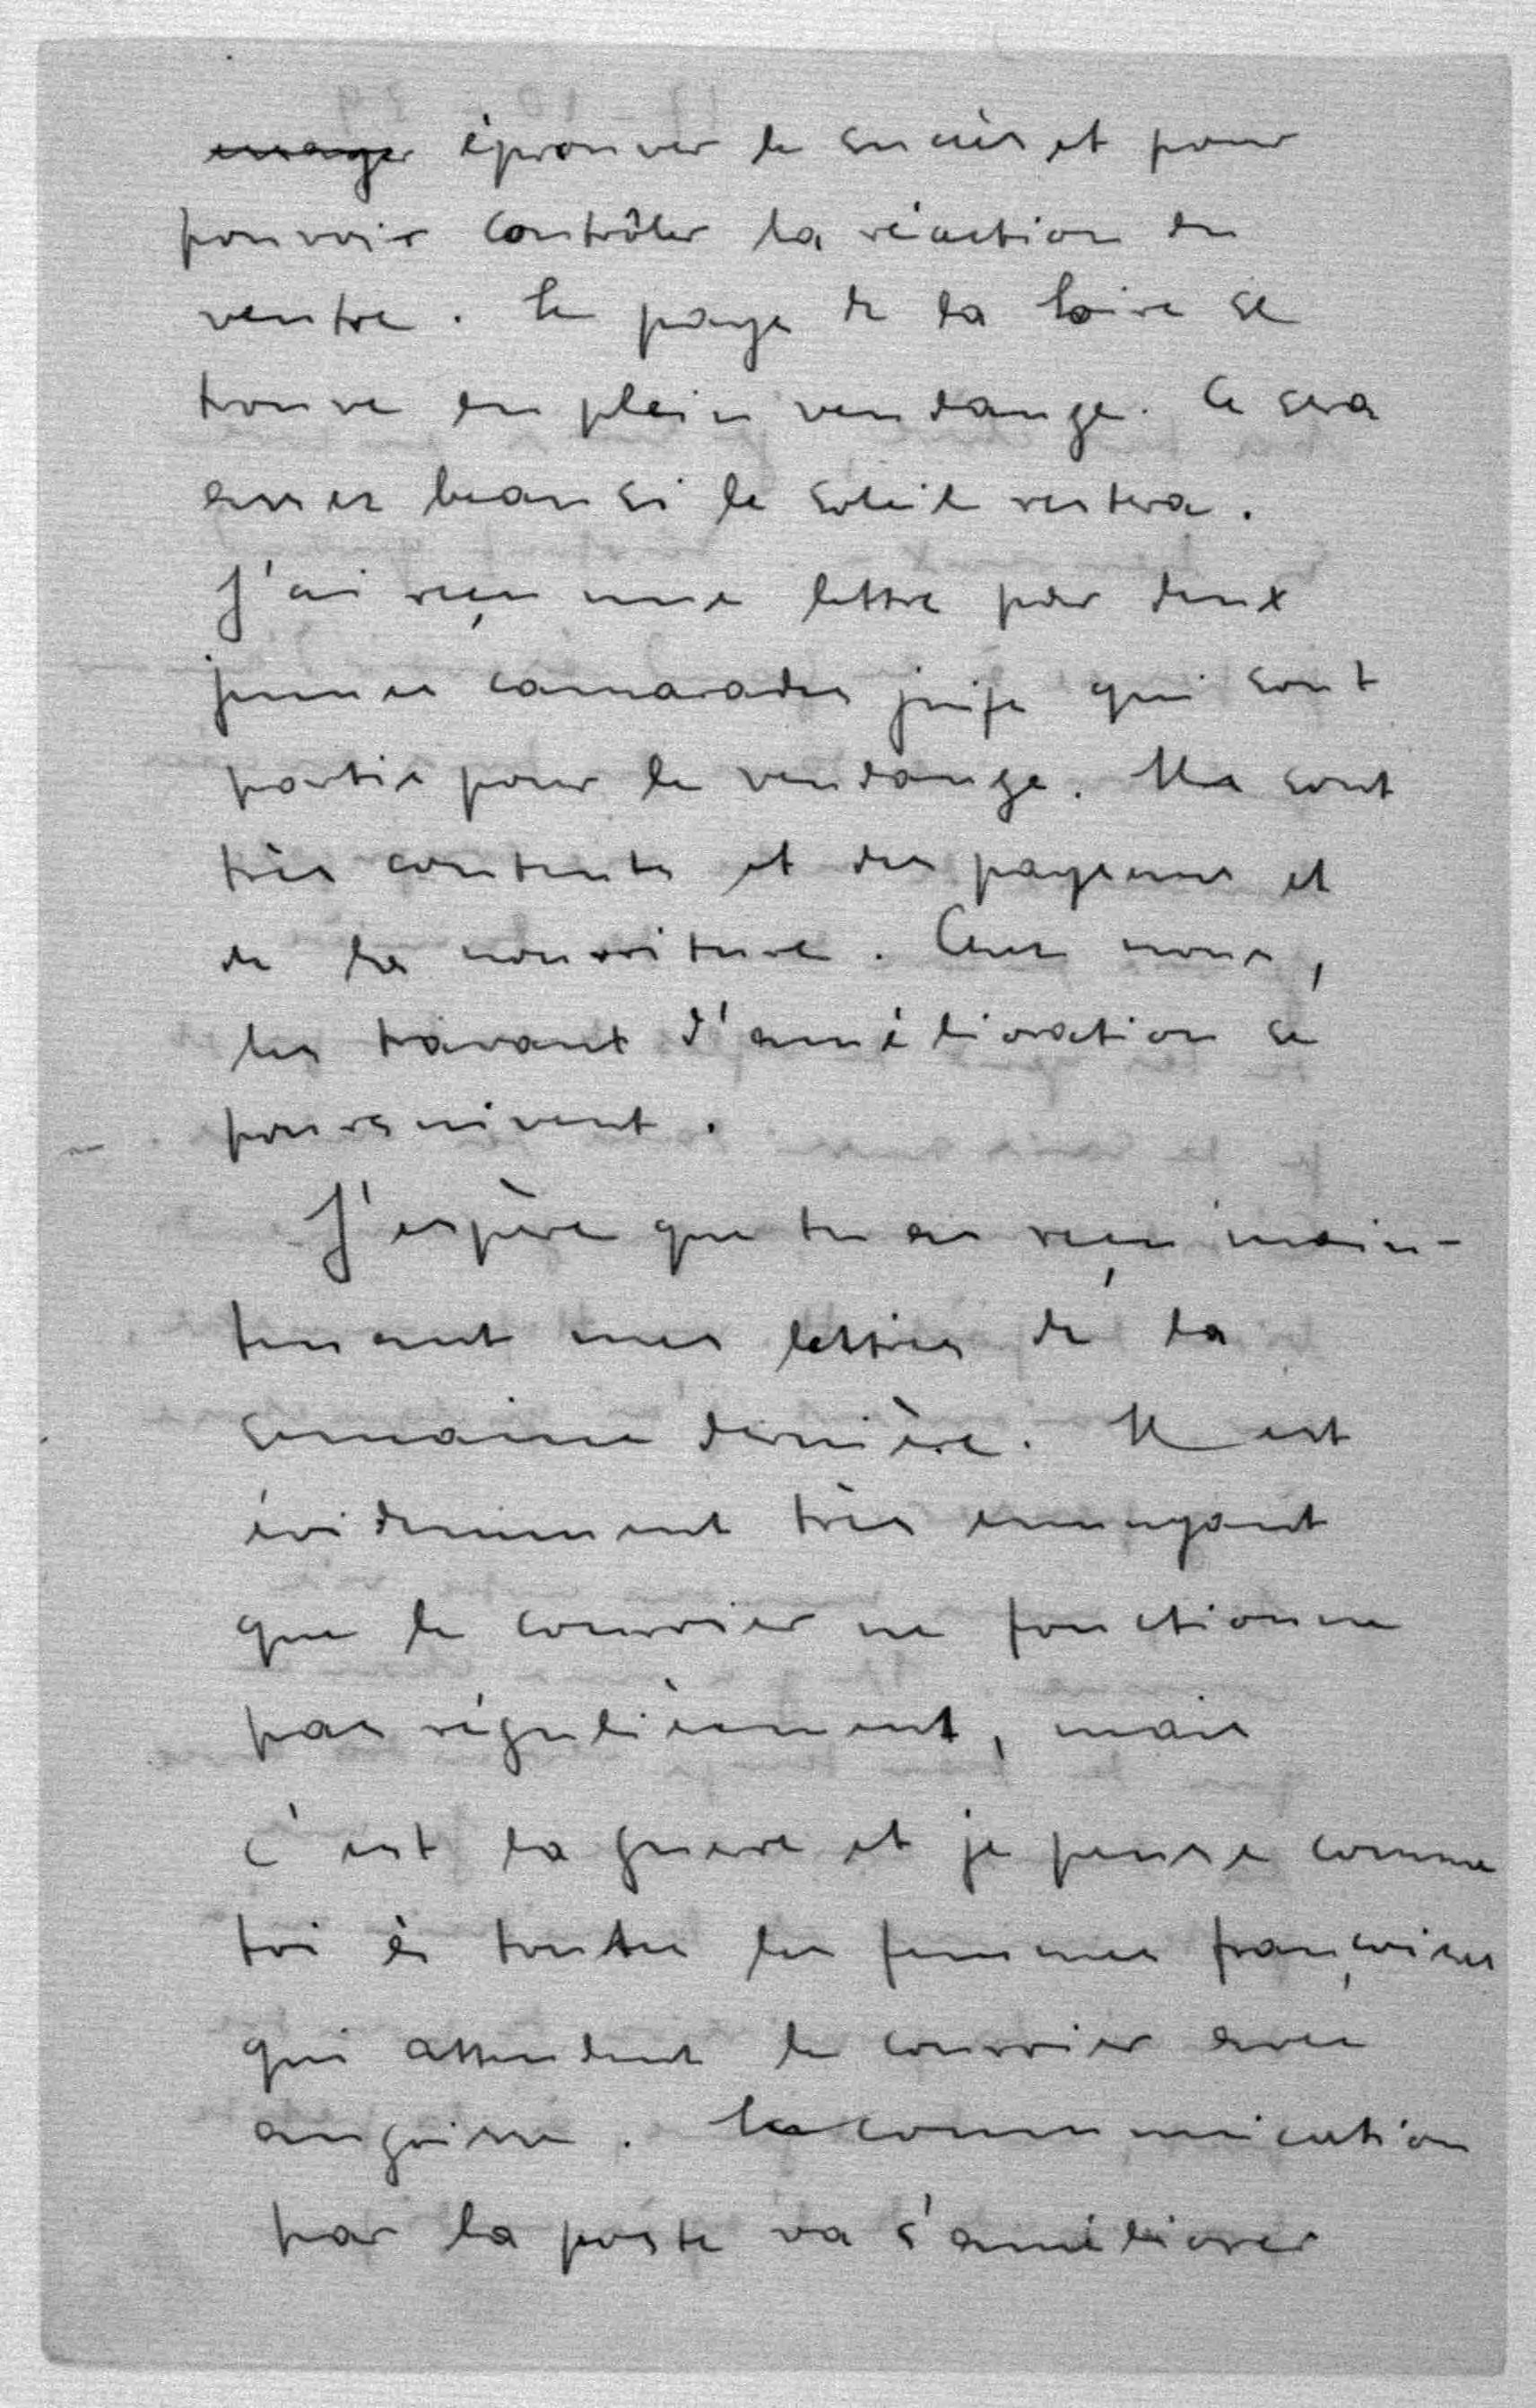 éprouver le succès et pour
pouvoir contrôler la réaction du
ventre. Le pays de la Loire se
trouve en plein vendange. Ce sera
assez beau si le soleil restera.
J'ai reçu une lettre par deux
jeunes camarades juifs qui sont
partis pour le vendange. Ils sont
très contents et des paysans et
de la nourriture. Chez nous,
les travaux d'amélioration se
poursuivent.
J'espère que tu as reçu main-
tenant mes lettres de la
semaine dernière. Il est
évidemment très ennuyant
que le courrier ne fonctionne
pas régulièrement, mais
c'est la guerre et je pense comme
toi à toutes les femmes françaises
qui attendent le courrier avec
angoisse. La communication
par la poste va s'améliorer